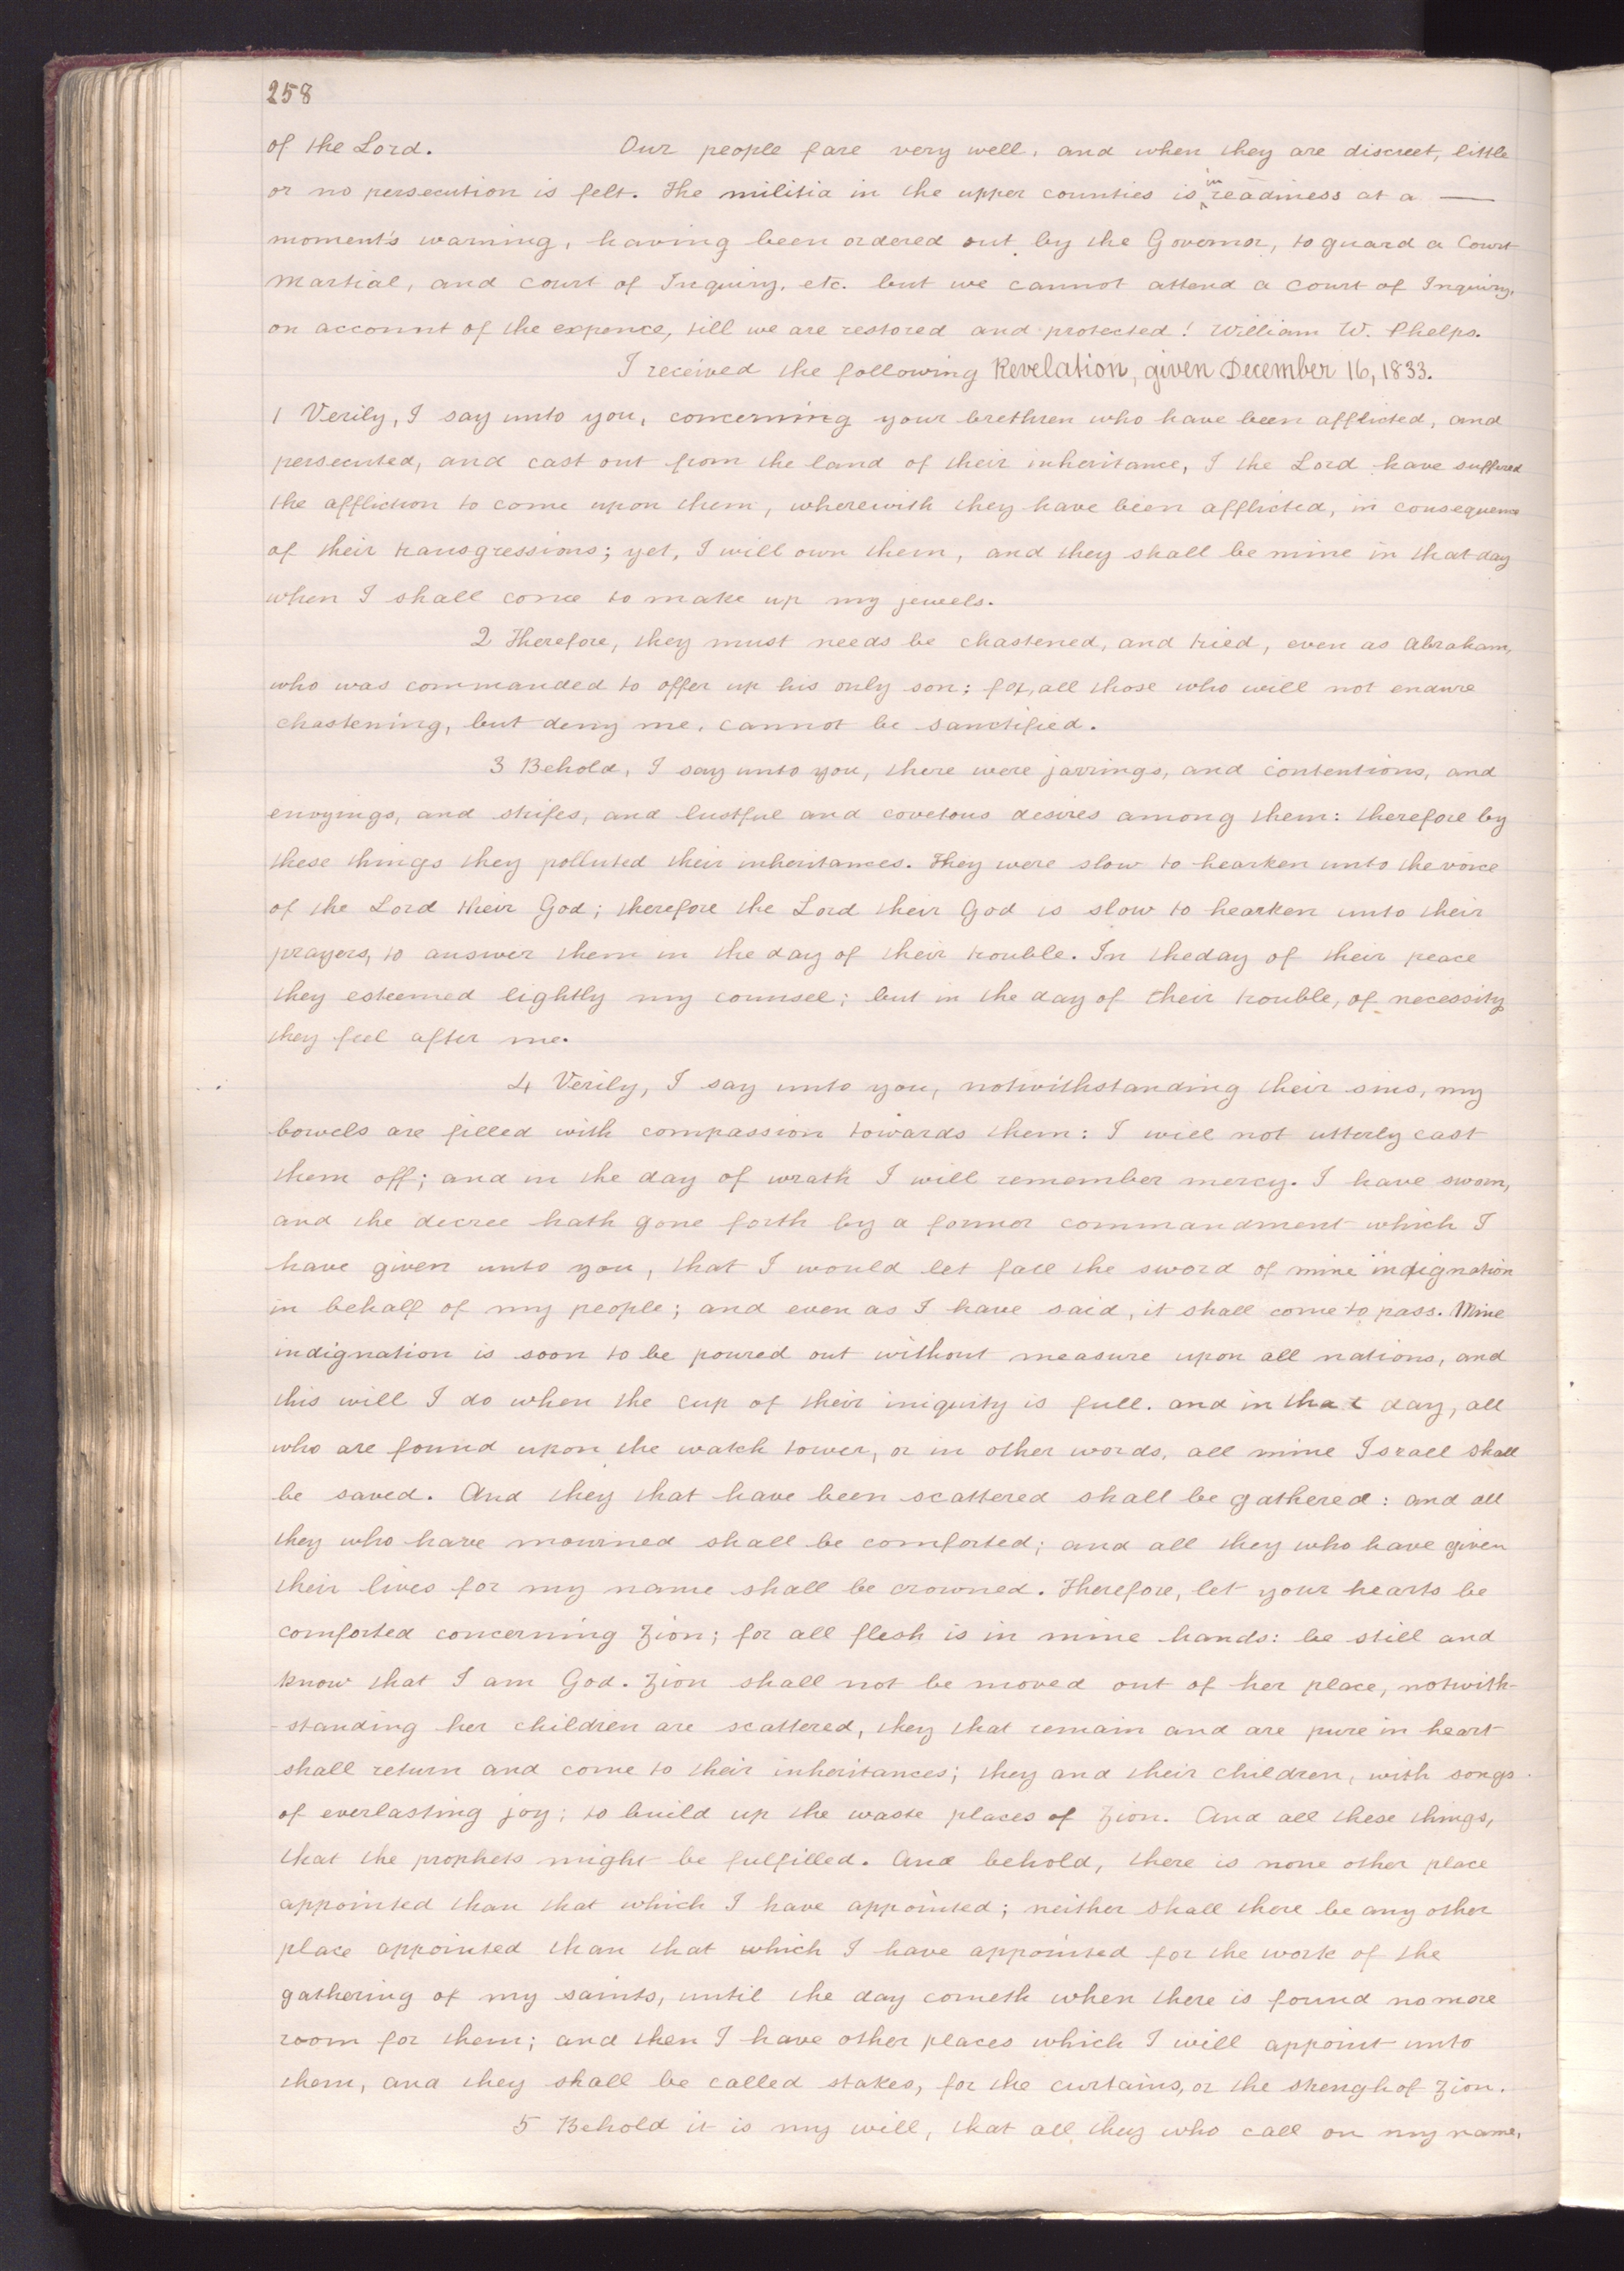 258
of the Lord. Our people fare very well, and when they are discreet, little
or no persecution is felt. The militia in the upper counties is in readiness at a —
moment's warning, having been ordered out by the Governor, to guard a Court
Martial, and court of Inquiry, etc. but we cannot attend a Court of Inquiry,
on account of the expence, till we are restored and protected! William W. Phelps.
I received the following Revelation, given December 16, 1833.
1 Verily, I say unto you, concerning your brethren who have been afflicted, and
persecuted, and cast out from the land of their inheritance, I the Lord have suffered
the affliction to come upon them, wherewith they have been afflicted, in consequence
of their transgressions; yet, I will own them, and they shall be mine in that day
when I shall come to make up my jewels.
2 Therefore, they must needs be chastened, and tried, even as Abraham,
who was commanded to offer up his only son; for, all those who will not endure
chastening, but deny me, cannot be sanctified.
3 Behold, I say unto you, there were jarrings, and contentions, and
envyings, and strifes, and lustful and covetous desires among them: therefore by
these things they polluted their inheritances. They were slow to hearken unto the voice
of the Lord their God; therefore the Lord their God is slow to hearken unto their
prayers, to answer them in the day of their trouble. In the day of their peace
they esteemed lightly my counsel; but in the day of their trouble, of necessity
they feel after me.
4 Verily, I say unto you, notwithstanding their sins, my
bowels are filled with compassion towards them: I will not utterly cast
them off; and in the day of wrath I will remember mercy. I have sworn,
and the decree hath gone forth by a former commandment which I
have given unto you, that I would let fall the sword of mine indignation
in behalf of my people; and even as I have said, it shall come to pass. Mine
indignation is soon to be poured out without measure upon all nations, and
this will I do when the cup of their iniquity is full. and in that day, all
who are found upon the watch tower, or in other words, all mine Israel shall
be saved. And they that have been scattered shall be gathered: and all
they who have mourned shall be comforted; and all they who have given
their lives for my name shall be crowned. Therefore, let your hearts be
comforted concerning Zion; for all flesh is in mine hands: be still and
know that I am God. Zion shall not be moved out of her place, notwith-
-standing her children are scattered, they that remain and are pure in heart
shall return and come to their inheritances; they and their children, with songs
of everlasting joy; to build up the waste places of Zion. And all these things,
that the prophets might be fulfilled. And behold, there is none other place
appointed than that which I have appointed; neither shall there be any other
place appointed than that which I have appointed for the work of the
gathering of my saints, until the day cometh when there is found no more
room for them; and then I have other places which I will appoint unto
them, and they shall be called stakes, for the curtains, or the strengh of Zion.
5 Behold it is my will, that all they who call on my name,